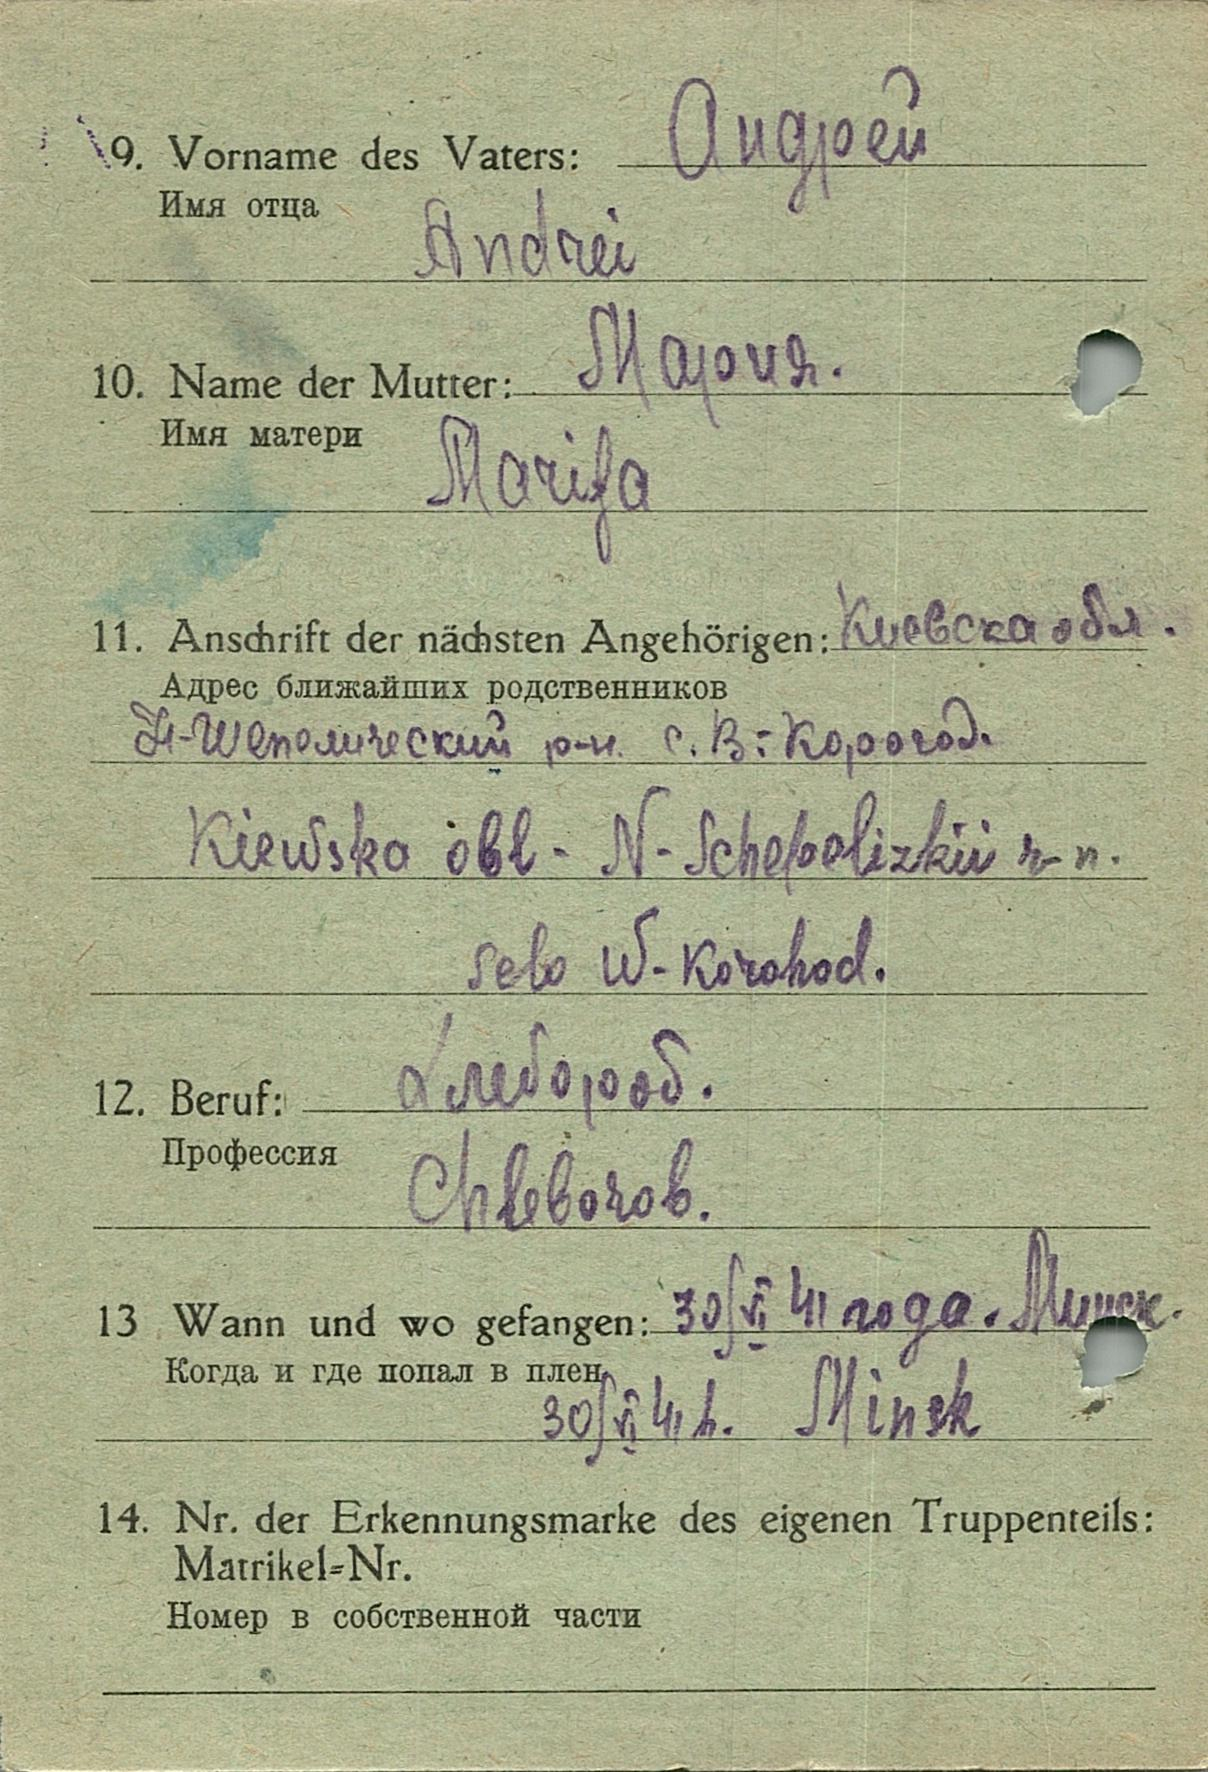 9. Vorname des Vaters: Андрей
Имя отца
Andrei
10. Name der Mutter: Мария.
Имя матери
Marija
11. Anschrift der nächsten Angehörigen: Киевска обл.
Адрес ближайших родственников
Н-Шепелический р-н. с. В-Корогод.
Kiewska obl- N-Schepelizkii r-n.
selo W-Korohod.
12. Beruf: Хлебороб.
Профессия
Chleborob.
13 Wann und wo gefangen: 30/VI 41 года. Минск.
Когда и где попал в плен
30/VI 41 h. Minsk
14. Nr. der Erkennungsmarke des eigenen Truppenteils:
Matrikel=Nr.
Номер в собственной части